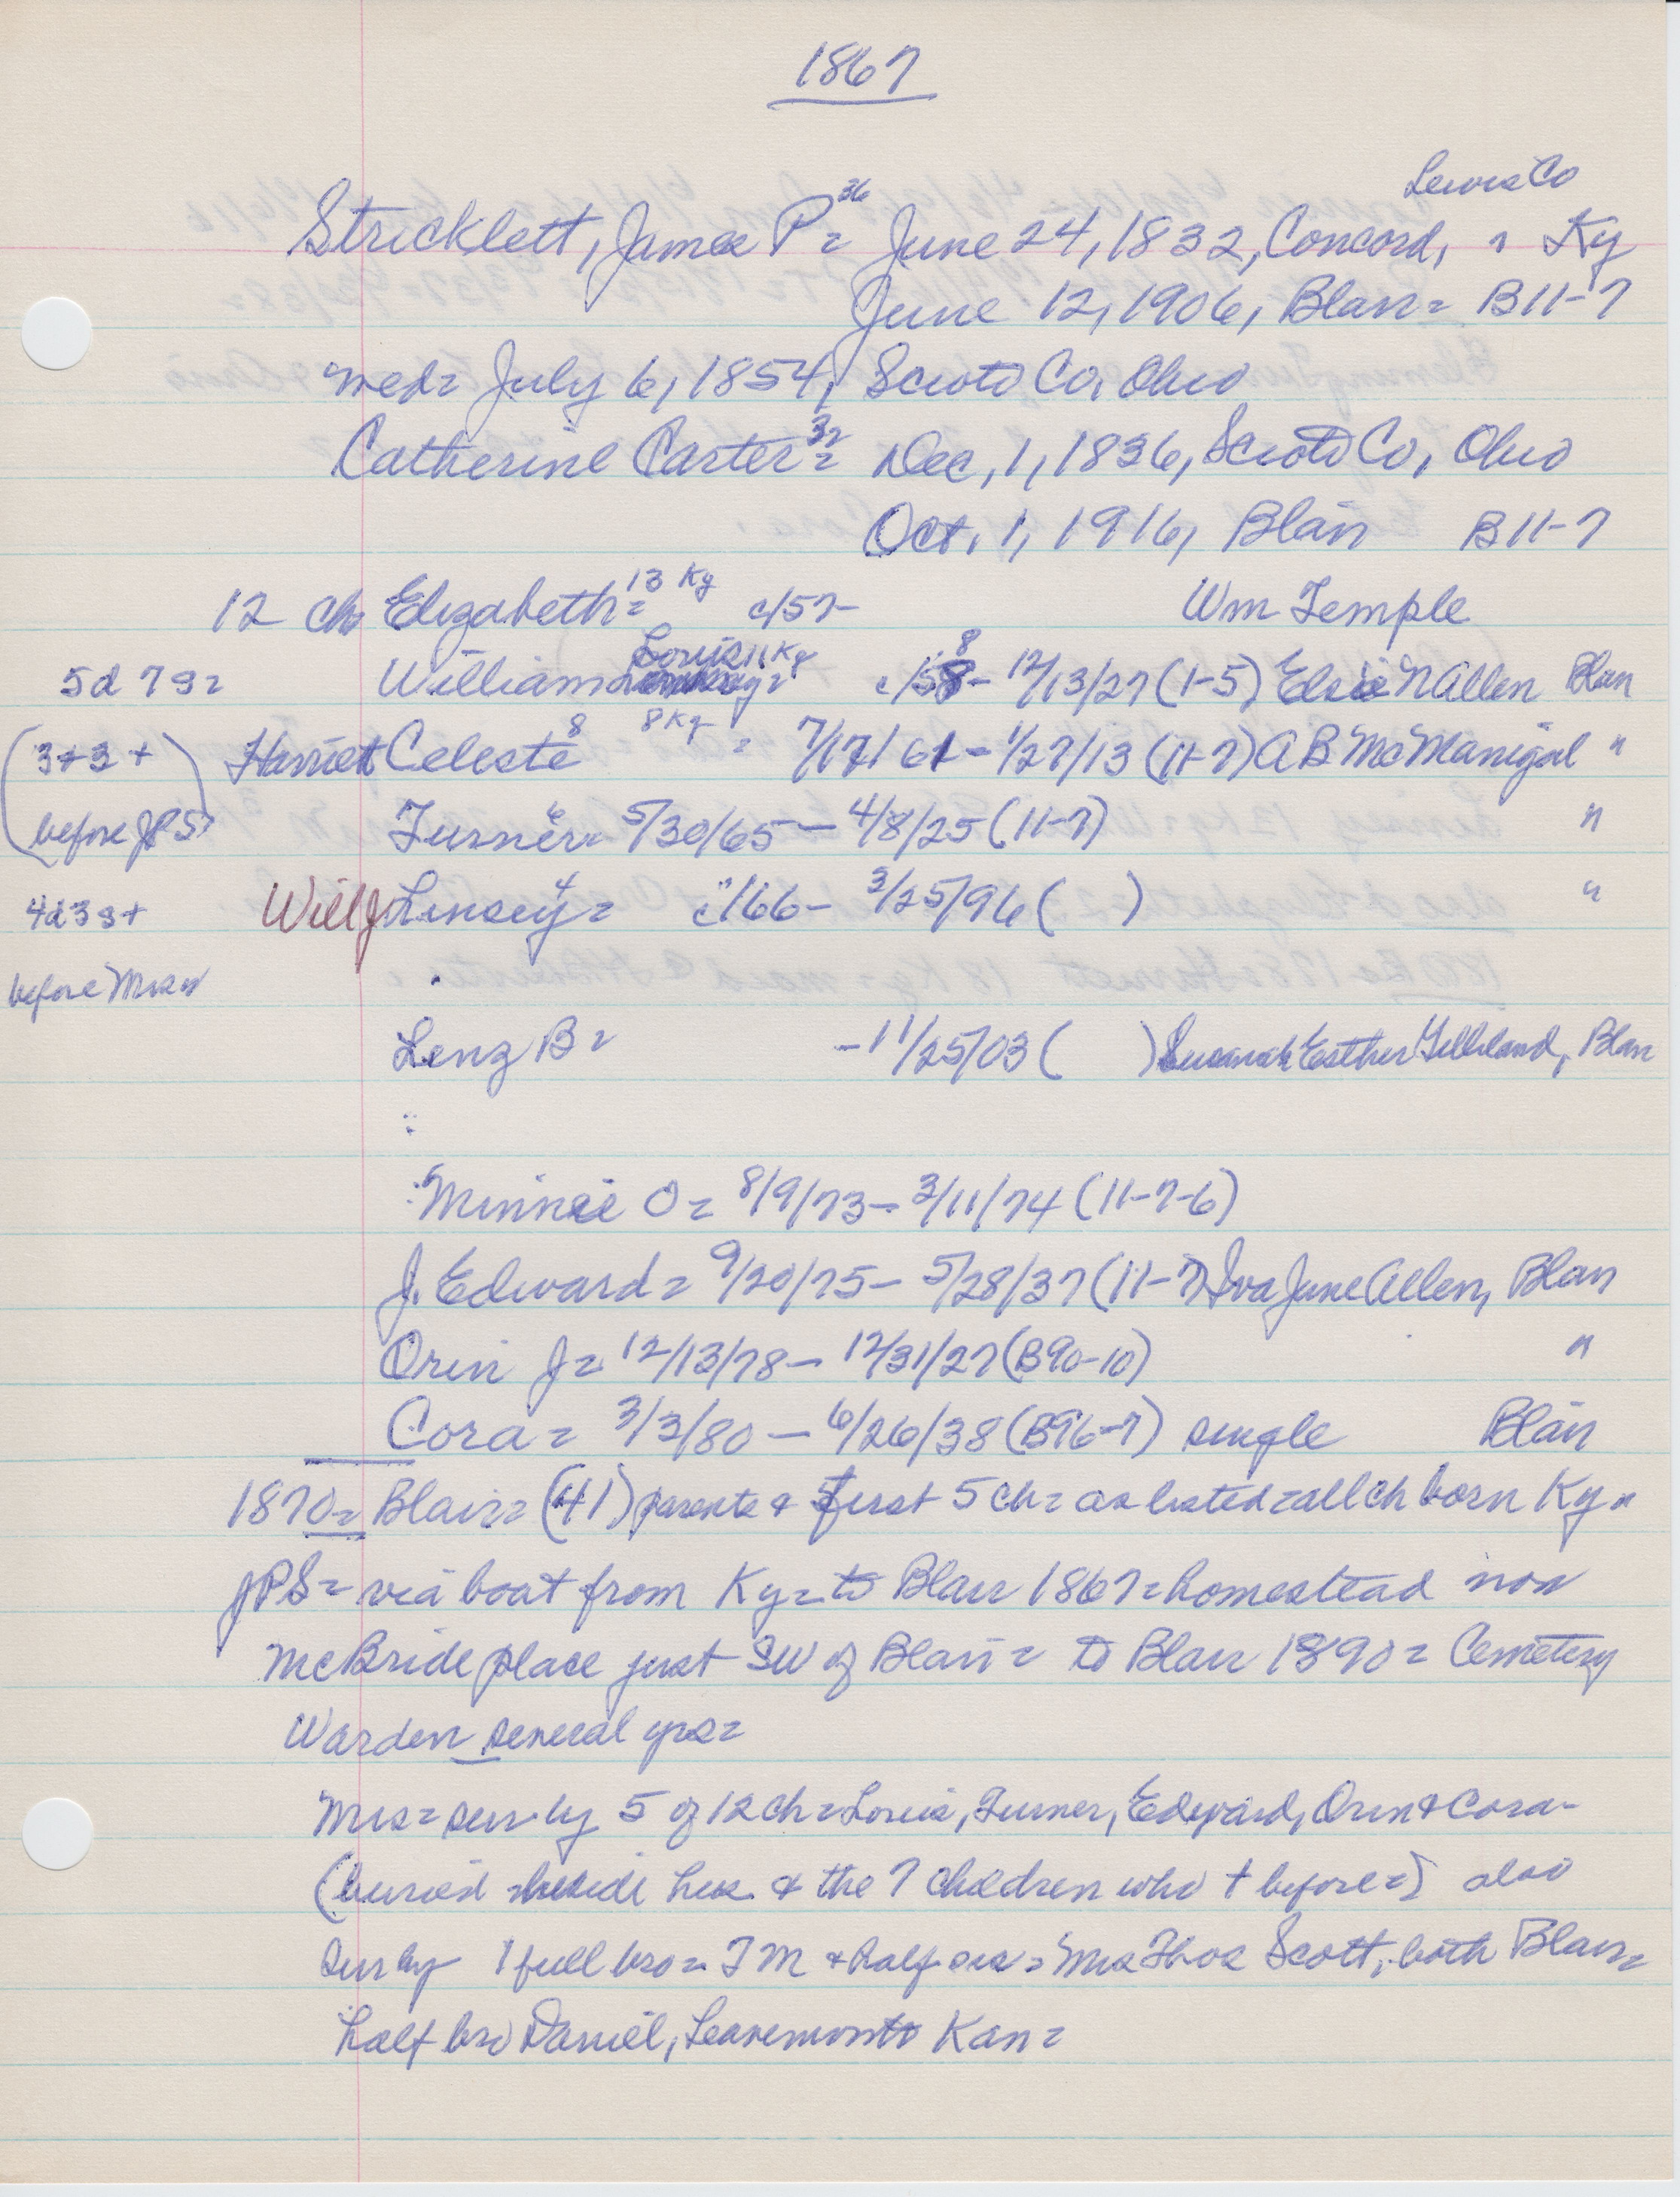 1867
Lewis Co
Stricklett, James P= 36 June 24, 1832, Concord, " Ky
June 12, 1906, Blair= B11-7
med= July 6, 1854, Scioto Co, Ohio
Catherine Carter= 32 Dec, 1, 1836, Scioto Co, Ohio
Oct. 1, 1916, Blair B11-7
12 ch Elizabeth= 13 Ky c/57- Wm Temple
5d 7s= William Louis 11 Ky c/58- 12/13/27 (1-5) Elsie N Allen Blair
(3+3+ Harriet Celeste 8 8 Ky = 7/17/61- 1/27/13 (11-7) A B McManigal "
before JPS) Turner= 6 5/30/65- 4/8/25 (11-7) "
4d3s+ Will J Linsey= 4 c/66- 3/25/96 ( ) "
before Mrs
Lenz B= -11/25/03 ( ) Susanah Esther Gilliland, Blair
Minnie O= 8/9/73- 3/11/74 (11-7-6)
J. Edward= 9/20/75- 5/28/37 (11-7) Iva June Allen, Blair
Orin J= 12/13/78- 12/31/27 (B90-10) "
Cora= 3/3/80- 6/26/38 (B96-7) single Blair
1870= Blair= (41) parents & first 5 ch= as listed=all ch born Ky=
JPS= via boat from Ky= to Blair 1867= homestead now
McBride place just SW of Blair= to Blair 1890= Cemetery
Warden several yrs=
Mrs= sur by 5 of 12 ch= Louis, Turner, Edward, Orin & Cora-
(buried beside her & the 7 children who + before=) also
sur by 1 full bro= T M & half sis= Mrs Thos Scott, both Blair=
half bro Daniel, Leavenworth Kan=